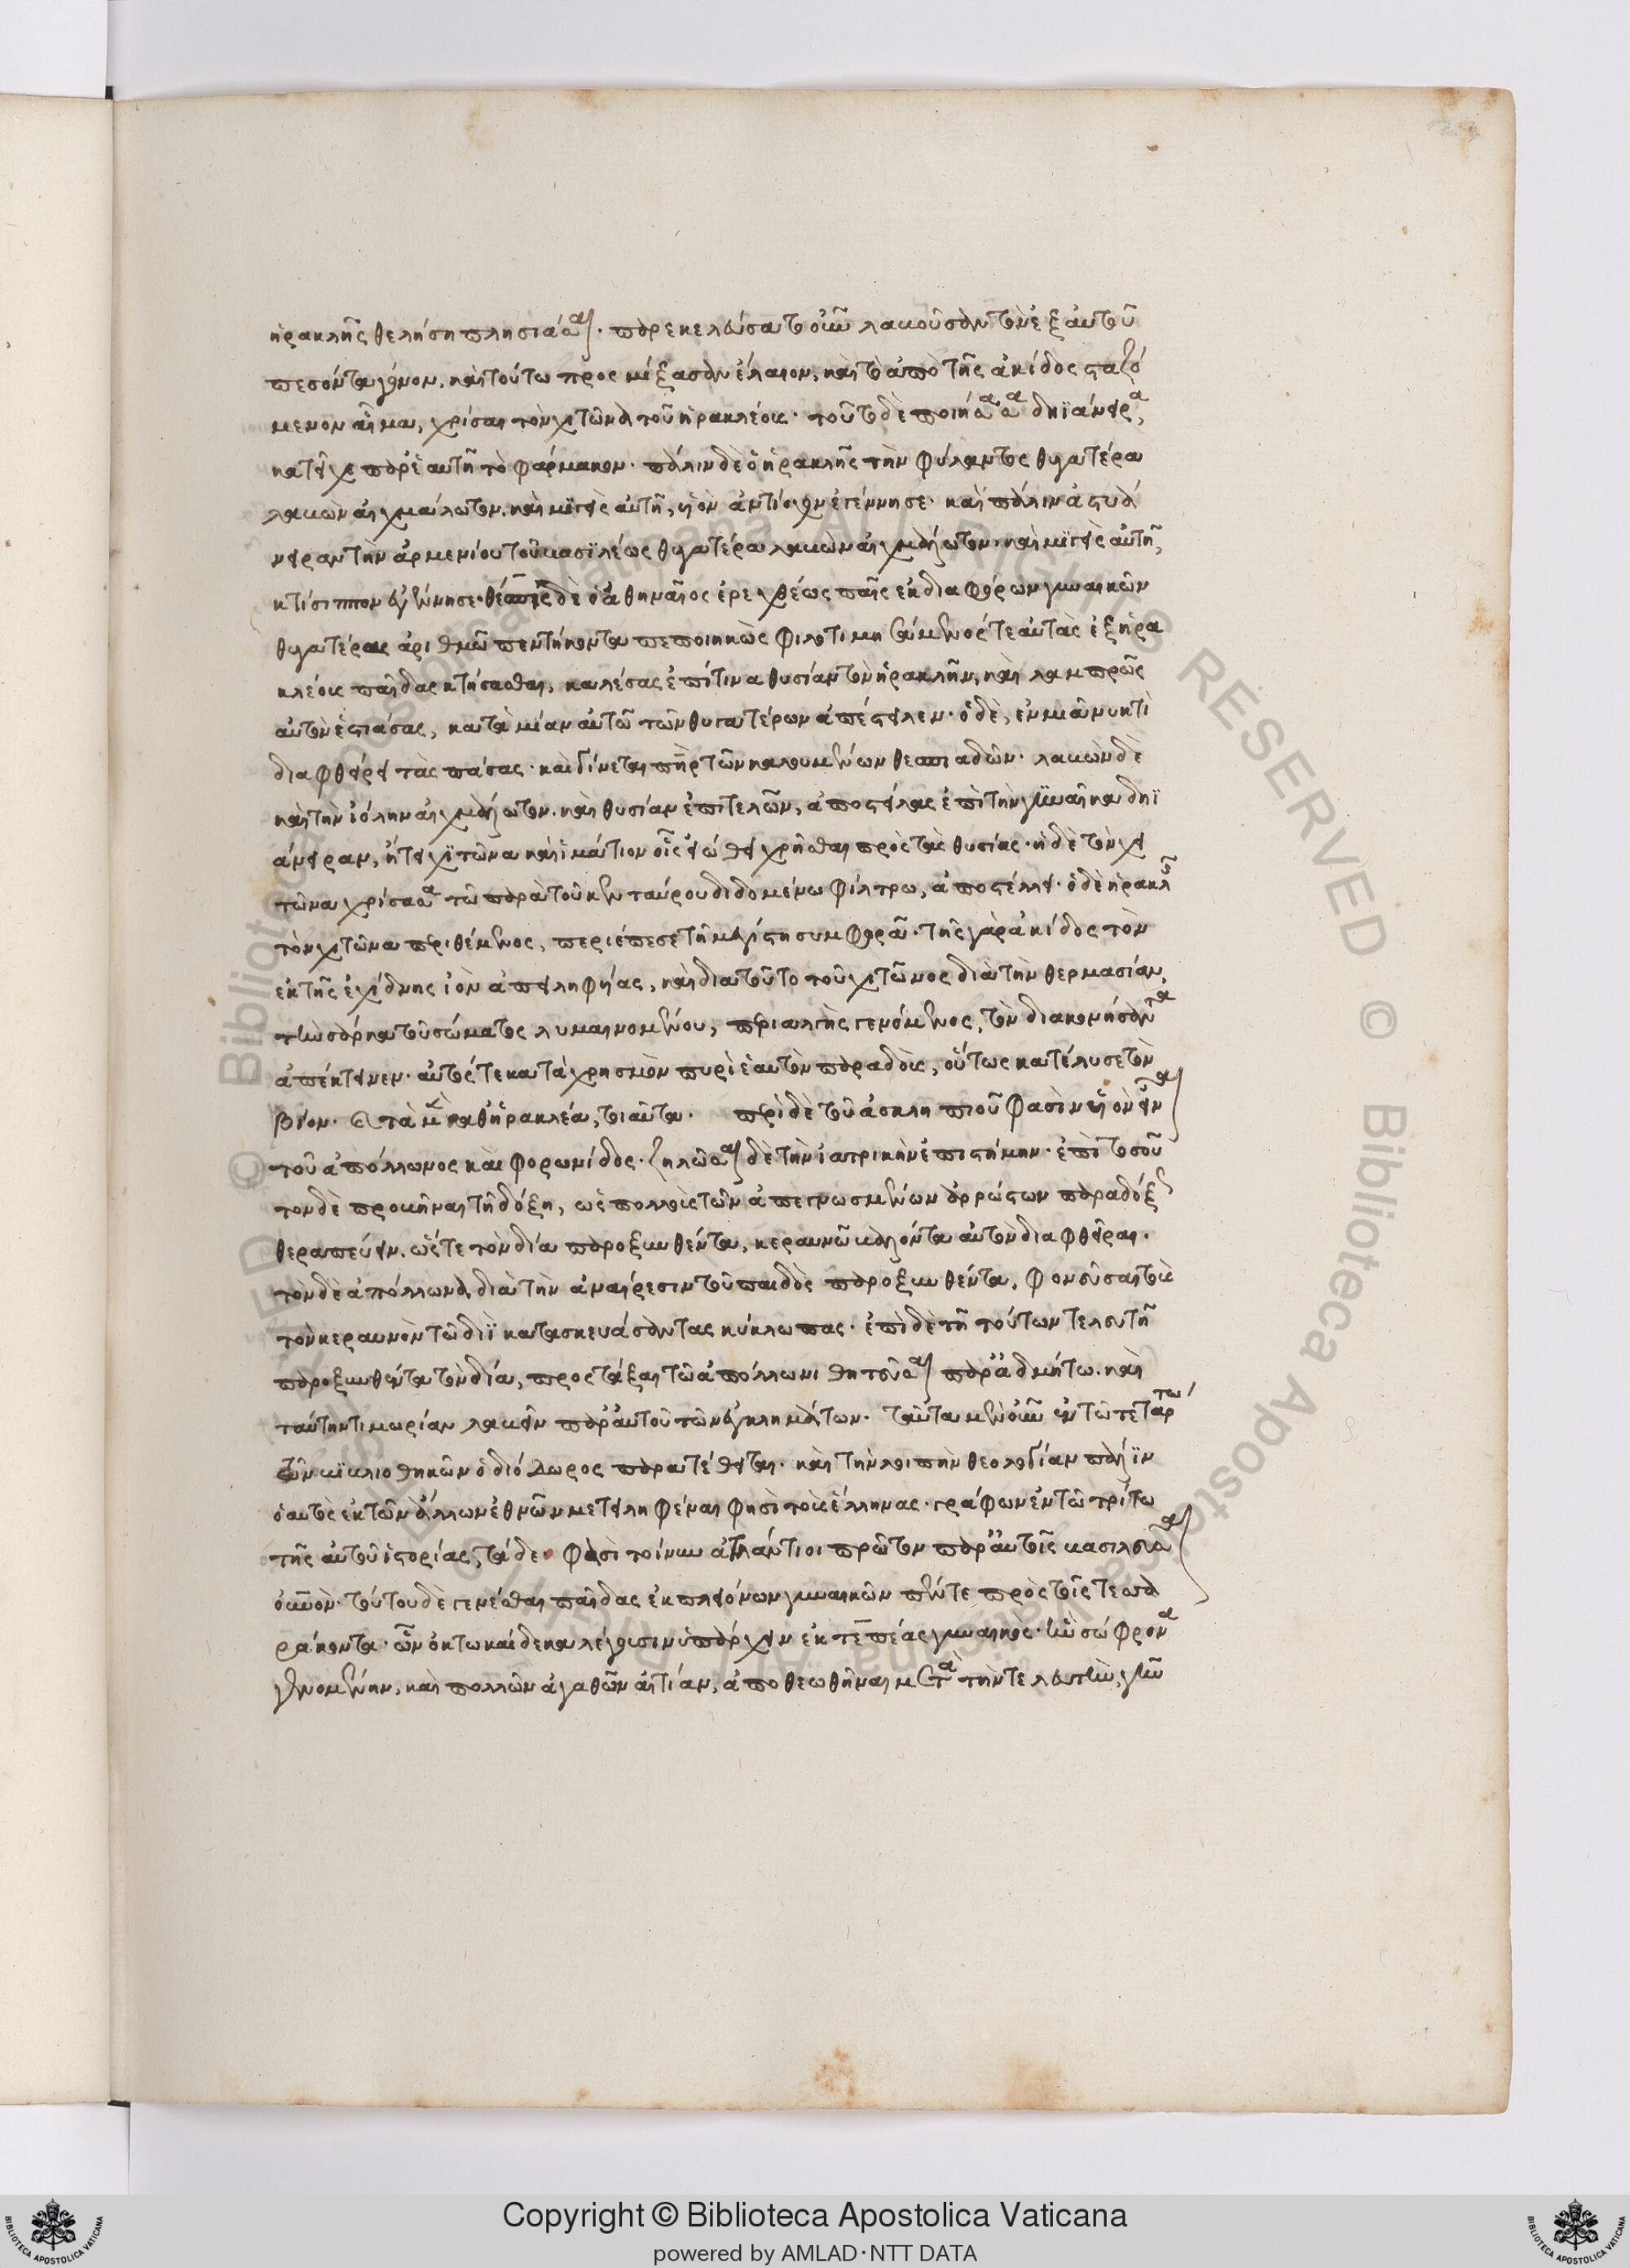 ἡρακλῆς θελήση πλησιάσαι. παρεκελεύσατο οὖν λαβοῦσαν τὸν ἐξ αὐτοῦ
πεσόντα γόνον, καὶ τούτω προσμίξασαν ἔλαιον, καὶ τὸ ἀπὸ τῆς ἀκίδος σταζό
μενον αἷμα, χρίσαι τὸν χιτῶνα τοῦ ἡρακλέους. τοῦτο δὲ ποιήσασα δηϊάνειρα,
κατεῖχε παρ' ἑαυτῆ τὸ φάρμακον. πάλιν δὲ ὁ ἡρακλῆς τὴν φύλαντος θυγατέρα
λαβὼν αἰχμάλωτον, καὶ μιγεὶς αὐτῆ, υἱὸν ἀντίοχον ἐγέννησε. καὶ πάλιν ἀστυδά
νειραν τὴν ἀρμενίου τοῦ βασιλέως θυγατέρα λαβὼν αἰχμάλωτον, καὶ μιγεὶς αὐτῆ,
κτίσιππον ἐγέννησε. θέσπις δὲ ὁ ἀθηναῖος ἐρεχθέως παῖς ἐκ διαφόρων γυναικῶν
θυγατέρας ἀριθμῶ πεντήκοντα πεποιηκὼς φιλοτιμησάμενός τε αὐτὰς ἐξ ἡρα
κλέους παῖδας κτήσασθαι, καλέσας ἐπί τινα θυσίαν τὸν ἡρακλῆν, καὶ λαμπρῶς
αὐτὸν ἑστιάσας, κατὰ μίαν αὐτῶ τῶν θυγατέρων ἀπέστειλεν. ὁ δὲ, ἐν μιᾶ νυκτὶ
διαφθείρει τὰς πάσας. καὶ γίνεται πατὴρ τῶν καλουμένων θεσπιαδῶν. λαβὼν δὲ
καὶ τὴν ἰόλην αἰχμάλωτον, καὶ θυσίαν ἐπιτελῶν, ἀποστείλας ἐπὶ τὴν γυναῖκα δηϊ
άνειραν, ἤτει χιτῶνα καὶ ἱμάτιον οἷς εἰώθει χρῆσθαι πρὸς τὰς θυσίας. ἡ δὲ τὸν χι
τῶνα χρίσασα τῶ παρὰ τοῦ κενταύρου διδομένω φίλτρω, ἀποστέλλει. ὁ δὲ ἡρακλῆς
τὸν χιτῶνα περιθέμενος, περιέπεσε τῆ μεγίστη συμφορᾶ. τῆς γὰρ ἀκίδος τὸν
ἐκ τῆς ἐχίδνης ἰὸν ἀπειληφυίας, καὶ διὰ τοῦτο τοῦ χιτῶνος διὰ τὴν θερμασίαν,
τὴν σάρκα τοῦ σώματος λυμαινομένου, περιαλγὴς γενόμενος, τὸν διακονήσαντα
ἀπέκτεινεν. αὐτός τε κατὰ χρησμὸν πυρὶ ἑαυτὸν παραδοὺς, οὕτως κατέλυσε τὸν
βίον. καὶ τὰ μὲν καθ' ἡρακλέα, τοιαῦτα. περὶ δὲ τοῦ ἀσκληπιοῦ φασὶν υἱὸν εἶναι
τοῦ ἀπόλλωνος καὶ φορωνίδος. ζηλῶσαι δὲ τὴν ἰατρικὴν ἐπιστήμην. ἐπὶ τοσοῦ
τον δὲ προβῆναι τῆ δόξη, ὡς πολλοὺς τῶν ἀπεγνωσμένων ἀρρώστων παραδόξως
θεραπεύειν. ὥστε τὸν δία παροξυνθέντα, κεραυνῶ βαλόντα αὐτὸν διαφθεῖραι.
τὸν δὲ ἀπόλλωνα διὰ τὴν ἀναίρεσιν τοῦ παιδὸς παροξυνθέντα, φονεῦσαι τοὺς
τὸν κεραυνὸν τῶ διῒ κατασκευάσαντας κύκλωπας. ἐπὶ δὲ τῆ τούτων τελευτῆ
παροξυνθέντα τὸν δία, προστάξαι τῶ ἀπόλλωνι θητεῦσαι παρὰ ἀδμήτω. καὶ
ταύτην τιμωρίαν λαβεῖν παρ' αὐτοῦ τῶν ἐγκλημάτων. ταῦτα μὲν οὖν ἐν τῶ τετάρτω
τῶν βιβλιοθηκῶν ὁ διόδωρος παρατέθειται. καὶ τὴν λοιπὴν θεολογίαν πάλιν
ὁ αὐτὸς ἐκ τῶν ἄλλων ἐθνῶν μετειληφέναι φησὶ τοὺς ἕλληνας. γράφων ἐν τῶ τρίτω
τῆς αὐτοῦ ἱστορίας τάδε. φασὶ τοίνυν ἀτλάντιοι πρῶτον παρ' αὐτοῖς βασιλεῦσαι
οὐρανόν. τούτου δὲ γενέσθαι παῖδας ἐκ πλειόνων γυναικῶν πέντε πρὸς τοῖς τεσσα
ράκοντα. ὧν ὀκτωκαίδεκα λέγουσιν ὑπάρχειν ἐκ τεπέας γυναικός. ἣν σώφρονα
γενομένην, καὶ πολλῶν ἀγαθῶν αἰτίαν, ἀποθεωθῆναι μετὰ τὴν τελευτὴν, γῆν
Copyright © Biblioteca Apostolica Vaticana
powered by AMLAD·NTT DATA